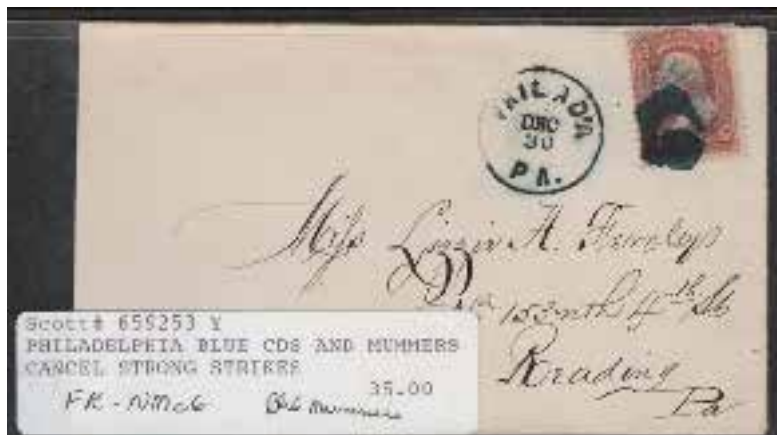 PHILAD'A
DEC
30
PA.
Miss Lizzie A.
153 nth 4th St
Reading
Pa
Scott# 65S253 Y
PHILADELPHIA BLUE CDS AND MUMMERS
CANCEL STRONG STRIKES
35.00
FK - NMc6
Mummers